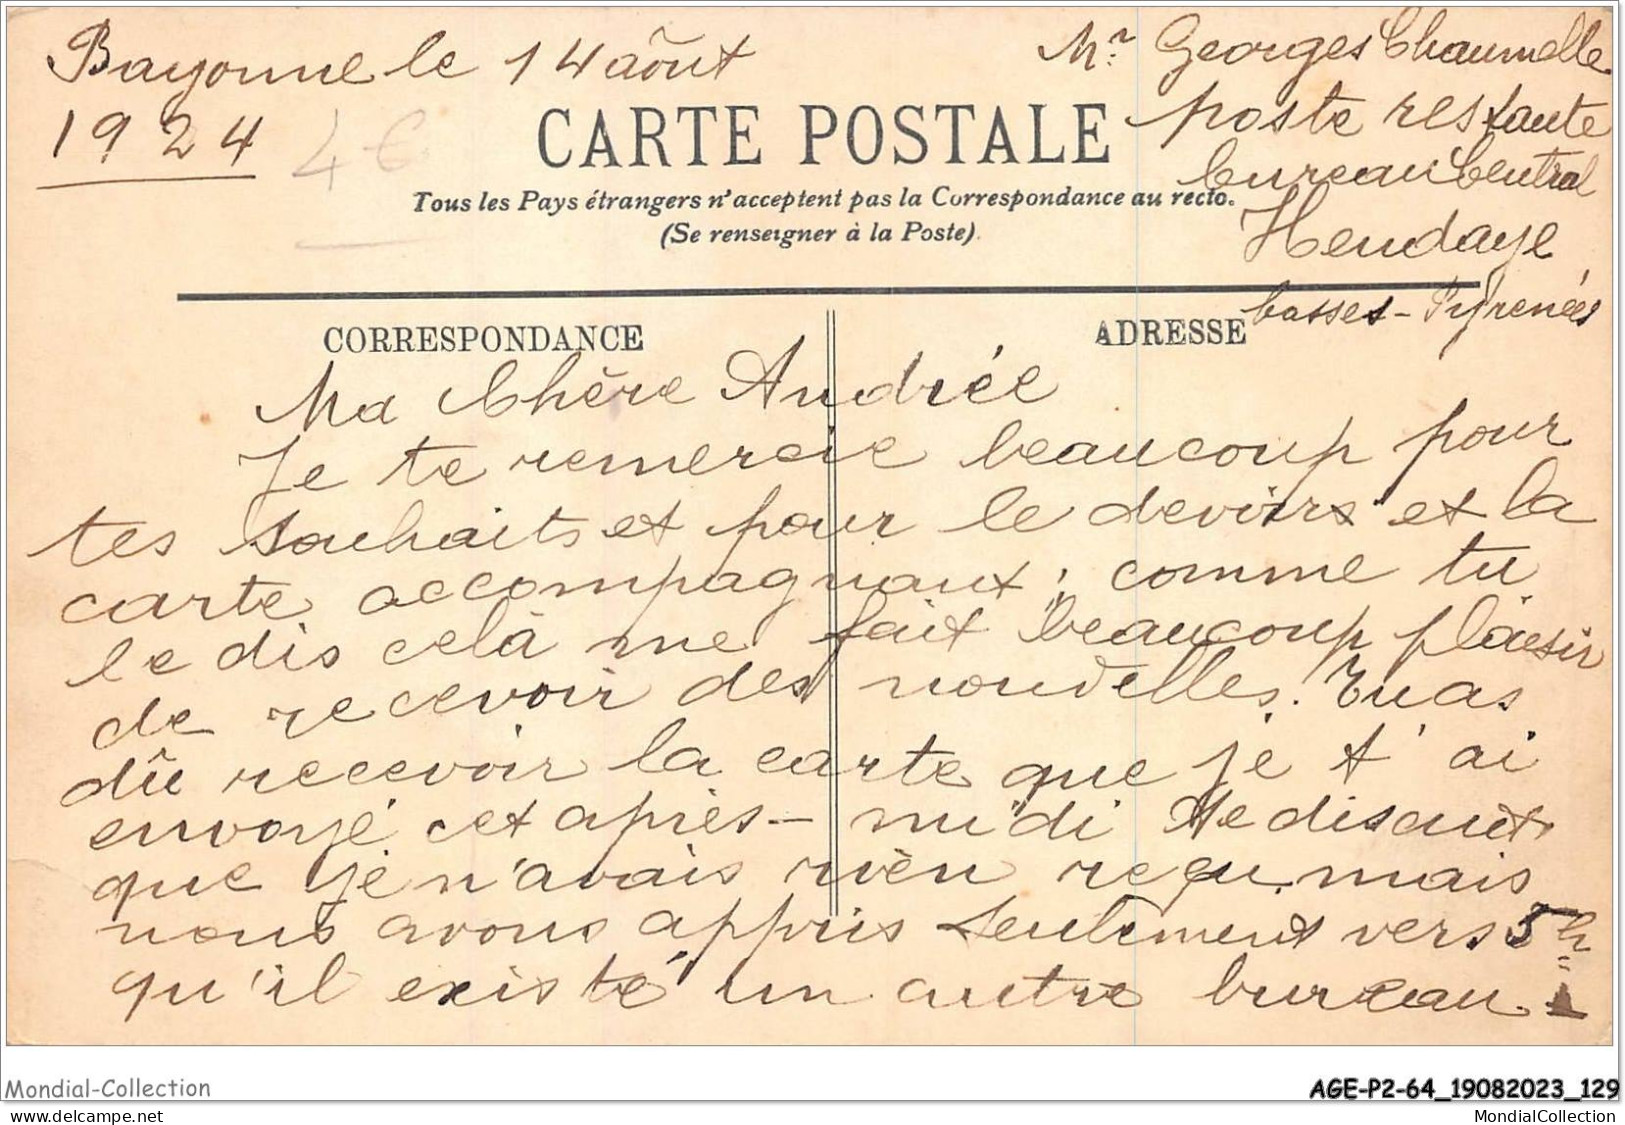 Bayonne le 14 aôut
1924
4€
Mr. Georges Chaumelle
poste restante
bureau Central
Hendaye
basses-Pyrenées
CARTE POSTALE
Tous les Pays étrangers n'acceptent pas la Correspondance au recto.
(Se renseigner à la Poste).
CORRESPONDANCE
ADRESSE
Ma Chère Andrée
Je te remercie beaucoup pour
tes souhaits et pour le devoirs et la
carte accompagnant; comme tu
le dis celà me fait beaucoup plaisir
de recevoir des nouvelles. Tu as
dû recevoir la carte que je t'ai
envoyé cet après-midi te disant
que je n'avais rien reçu. mais
nous avons appris seulement vers 5h
qu'il existé un autre bureau.
Mondial-Collection
AGE-P2-64_19082023_129
MondialCollection